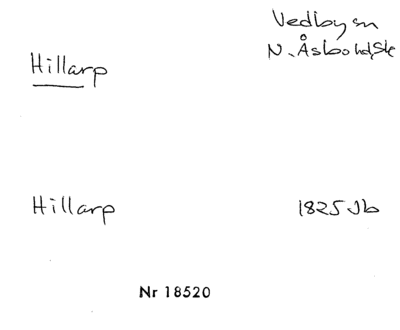 Vedby sn
Hillarp
N. Åsbo hd, Sk
Hillarp
1825 Jb
Nr 18520